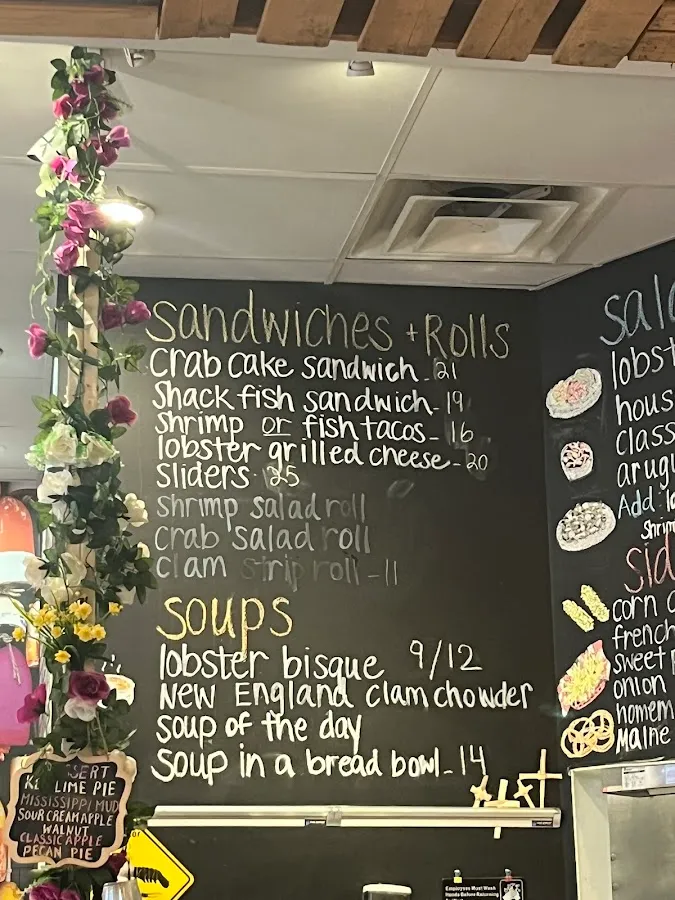 Sandwiches + Rolls
Crab Cake Sandwich - 21
Shack fish sandwich - 19
shrimp or fish tacos - 16
lobster grilled cheese - 20
Sliders 25
shrimp salad roll
crab salad roll
clam strip roll - 11
Soups
lobster bisque 9/12
New England clam chowder
soup of the day
soup in a bread bowl - 14
lobst
hous
class
arugu
Add
Shrim
sid
corn
french
sweet p
onion
homem
Maine
LIME PIE
MISSISSIPPI MUD
SOUR CREAM APPLE
WALNUT
CLASSIC APPLE
PECAN PIE
Employees Must Wash
Hands Before Returning